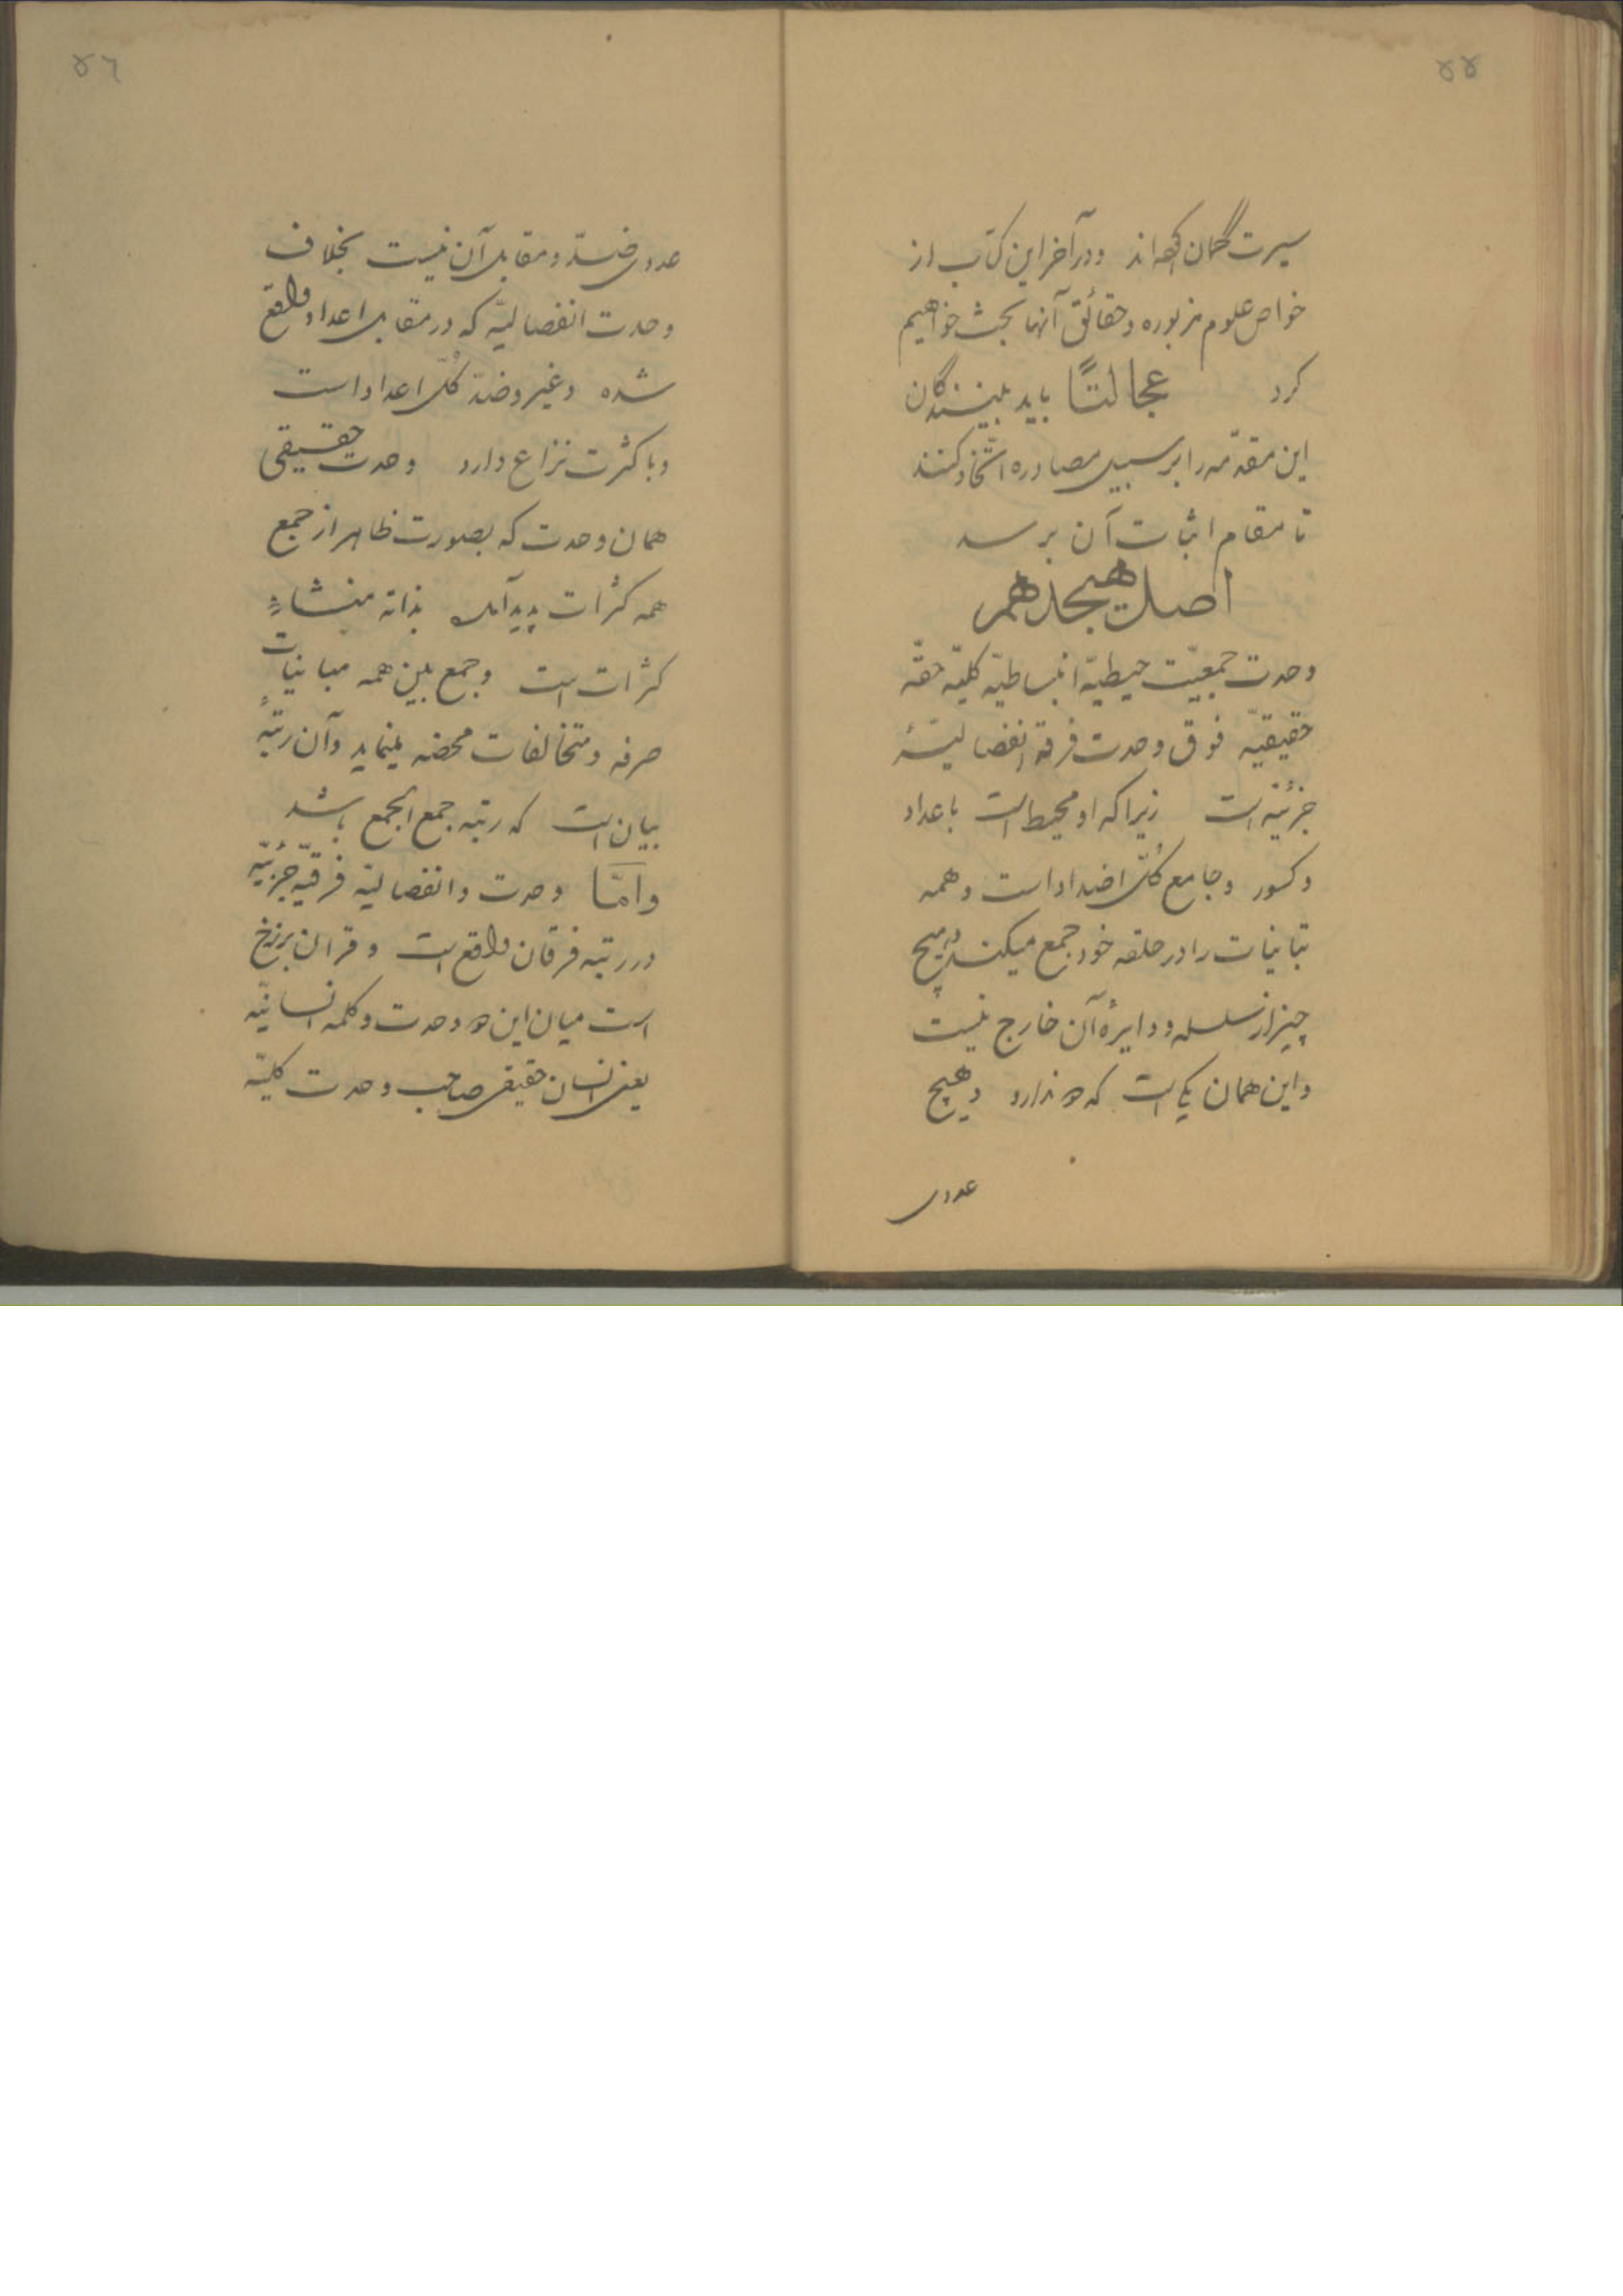 ۵۵
سیرت گمان کرده‌اند و در آخر این کتاب از
خواص علوم مزبوره و حقائق آنها بحث خواهیم
کرد عجالتًا باید بینندگان
این مقدّمه را بر سبیل مصادره اتّخاذ کنند
تا مقام اثبات آن برسد
اصل هیجدهم
وحدت جمعیّت حیطیّه انبساطیّه کلیّه حقّه
حقیقیّه فوق وحدت فرقیّه انفصالیّهٔ
جزئیّه است زیرا که او محیط است باعداد
و کسور و جامع کُلّ اضداد است و همه
تباینات را در حلقه خود جمع میکند و هیچ
چیز از سلسله و دایرهٔ آن خارج نیست
و این همان یکی است که دو ندارد و هیچ
عددی
۵۶
عددی ضدّ و مقابل آن نیست بخلاف
وحدت انفصالیّه که در مقابل اعداد واقع
شده و غیر و ضدّ کُلّ اعداد است
و با کثرت نزاع دارد وحدت حقیقی
همان وحدت که بصورت ظاهر از جمع
همه کثرات پدید آمد بذاته منشاء
کثرات است و جمع بین همه مباینات
صرفه و متخالفات محضه مینماید و آن رتبهٔ
بیان است که رتبه جمع الجمع باشد
و امّا وحدت و انفصالیّه فرقیّه جزئیّه
در رتبه فرقان واقع است و قران برزخ
است میان این دو وحدت و کلمه انسانیّه
یعنی انسان حقیقی صاحب وحدت کلیّه